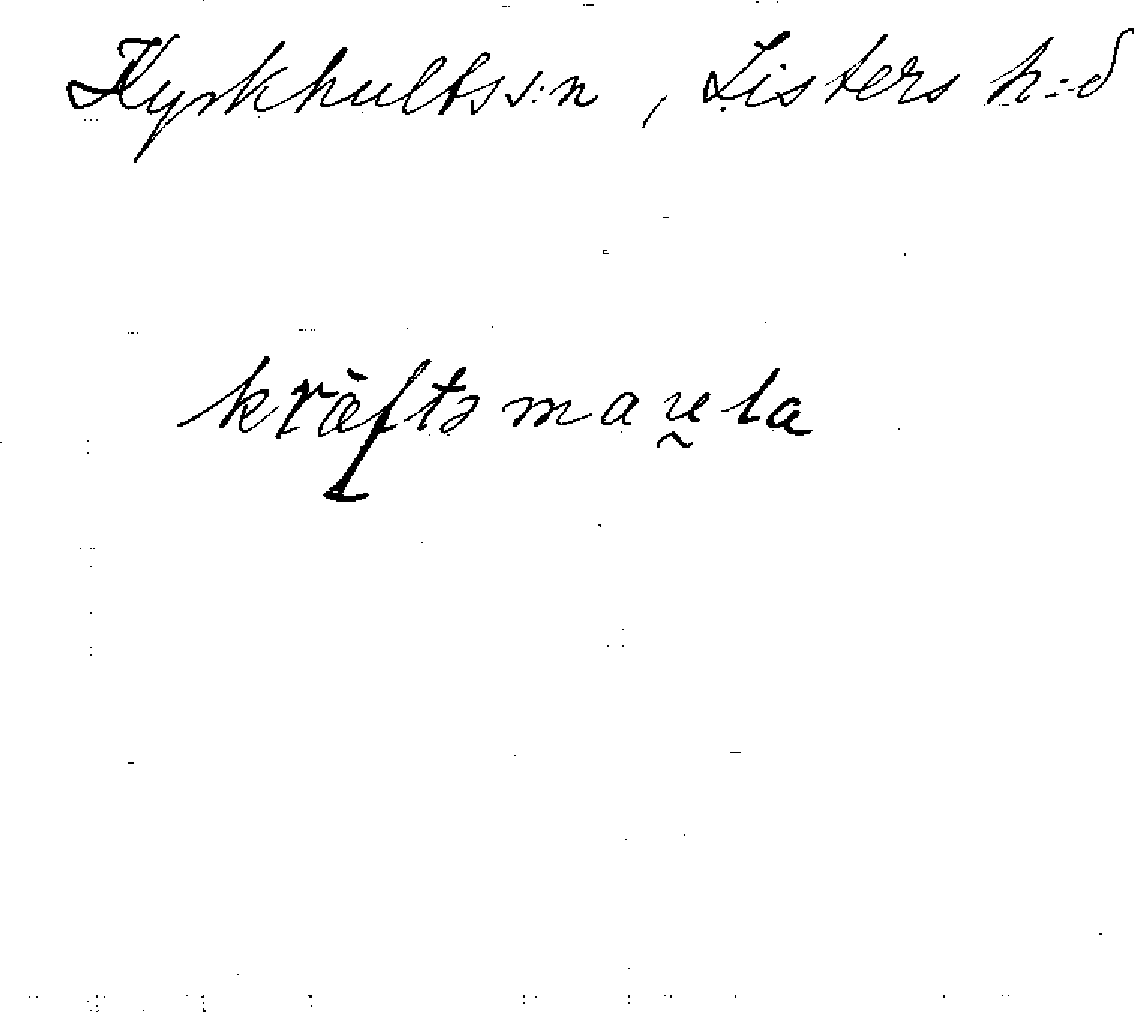 Kyrkhults s:n, Listers h:d
kräftsmau̯la